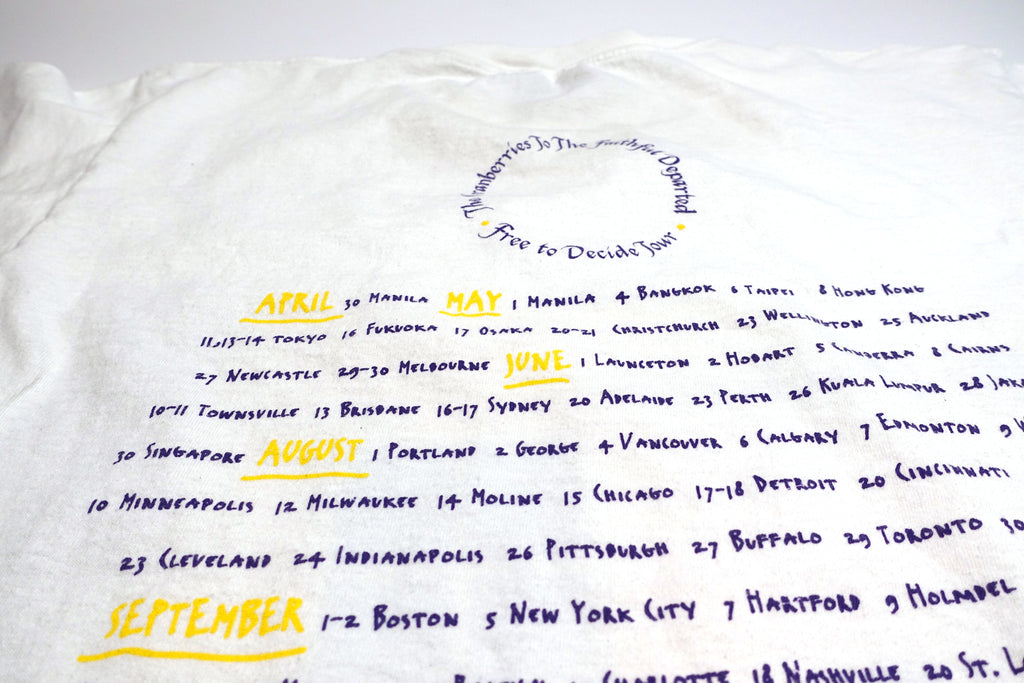 The Cranberries To The Faithful Departed
Free to Decide Tour
APRIL 30 MANILA MAY 1 MANILA 4 BANGKOK 6 TAIPEI 8 HONG KONG
11,13-14 TOKYO 16 FUKUOKA 17 OSAKA 20-21 CHRISTCHURCH 23 WELLINGTON 25 AUCKLAND
27 NEWCASTLE 29-30 MELBOURNE JUNE 1 LAUNCETON 2 HOBART 5 CANBERRA 8 CAIRNS
10-11 TOWNSVILLE 13 BRISBANE 16-17 SYDNEY 20 ADELAIDE 23 PERTH 26 KUALA LUMPUR 28 JAK
30 SINGAPORE AUGUST 1 PORTLAND 2 GEORGE 4 VANCOUVER 6 CALGARY 7 EDMONTON 9
10 MINNEAPOLIS 12 MILWAUKEE 14 MOLINE 15 CHICAGO 17-18 DETROIT 20 CINCINNATI
23 CLEVELAND 24 INDIANAPOLIS 26 PITTSBURGH 27 BUFFALO 29 TORONTO 30
SEPTEMBER 1-2 BOSTON 5 NEW YORK CITY 7 HARTFORD 9 HOLMDEL
CHARLOTTE 18 NASHVILLE 20 ST. L